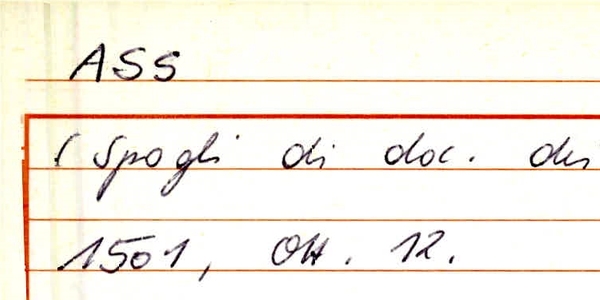 ASS
(Spogli di doc. dei
1501, Ott. 12.